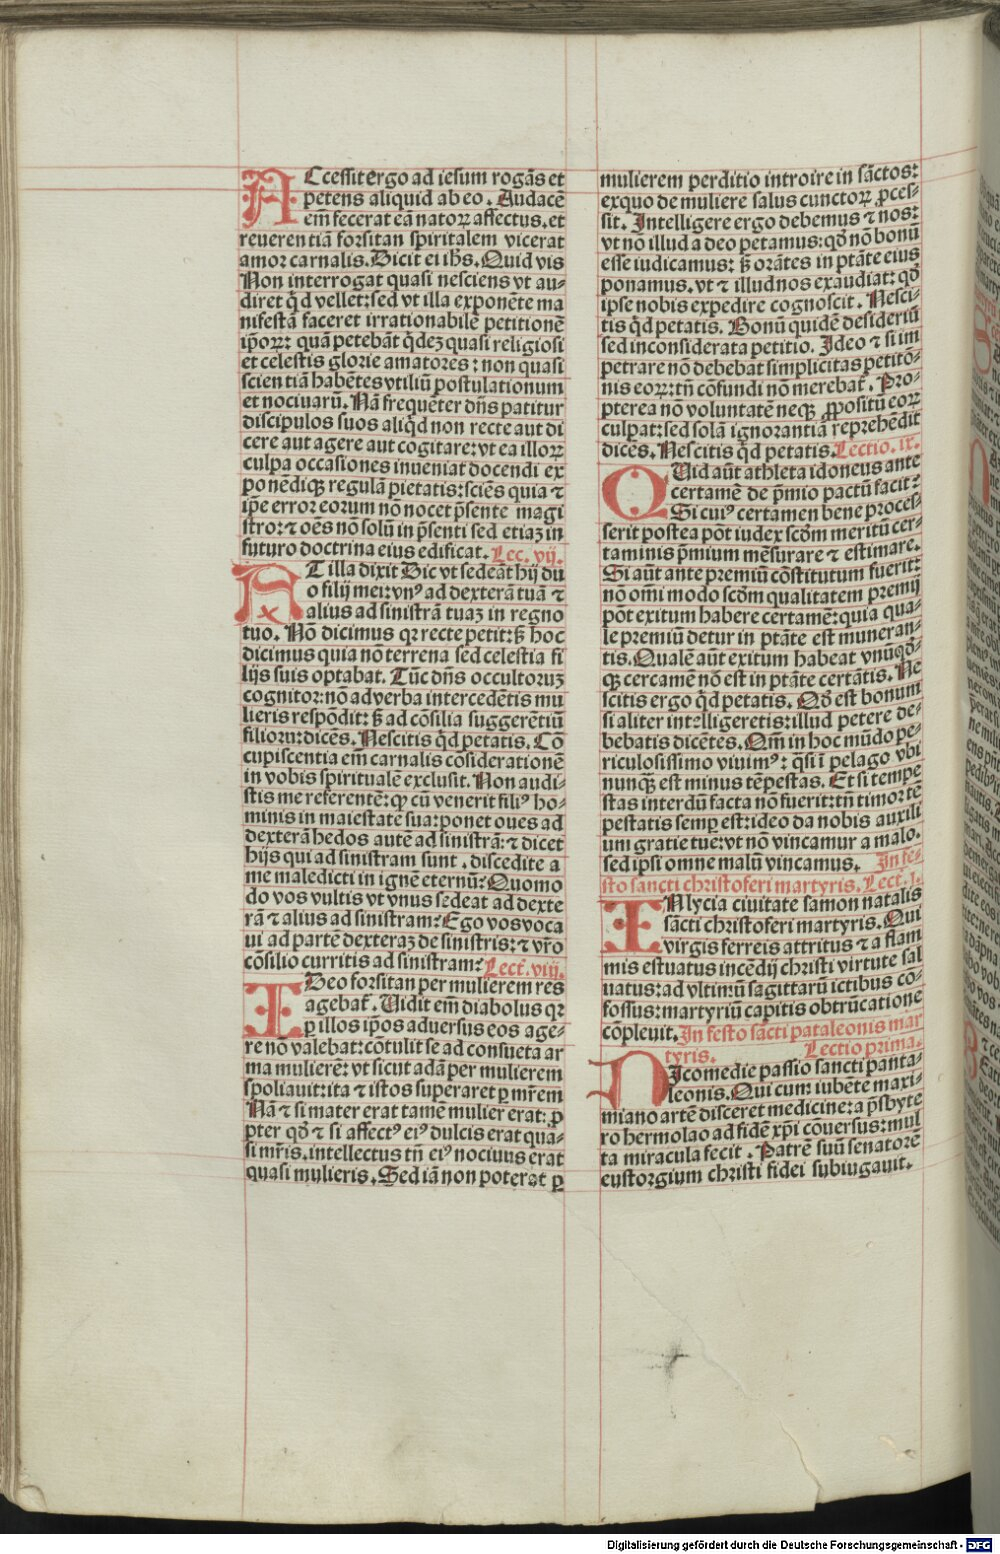 ACcessit ergo ad iesum rogãs et
petens aliquid ab eo. Audacẽ
em̃ fecerat eã natoꝝ affectus. et
reuerentiã forsitan spiritalem vicerat
amor carnalis. Dicit ei ihs̃. Quid vis
Non interrogat quasi nesciens vt au-
diret qd̃ vellet: sed vt illa exponẽte ma
nifestã faceret irrationabilẽ petitionẽ
ip̃oꝝ: quã petebãt q̃dez quasi religiosi
et celestis glorie amatores: non quasi
scientiã habẽtes vtiliũ postulationum
et nociuarũ. Nã frequẽter dñs patitur
discipulos suos aliq̃d non recte aut di
cere aut agere aut cogitare: vt ea illoꝝ
culpa occasiones inueniat docendi ex
ponẽdiqꝫ regulã pietatis: sciẽs quia ⁊
ip̃e error eorum nõ nocet p̃sente magi
stro: ⁊ oẽs nõ solũ in p̃senti sed etiaz in
futuro doctrina eius edificat. Lec. vij.
AT illa dixit Dic vt sedeãt hij du
o filij mei: vnꝰ ad dexterã tuã ⁊
alius ad sinistrã tuaz in regno
tuo. Nõ dicimus qꝛ recte petit: sꝫ hoc
dicimus quia nõ terrena sed celestia fi
lijs suis optabat. Tũc dñs occultoruz
cognitor: nõ ad verba intercedẽtis mu
lieris respõdit: sꝫ ad cõsilia suggerẽtiũ
filioru: dicẽs. Nescitis qd̃ petatis. Cõ
cupiscentia em̃ carnalis cõsiderationẽ
in vobis spiritualẽ exclusit. Non audi-
stis me referentẽ: qꝫ cũ venerit filiꝰ ho-
minis in maiestate sua: ponet oues ad
dexterã hedos autẽ ad sinistrã: ⁊ dicet
hijs qui ad sinistram sunt. discedite a
me maledicti in ignẽ eternũ: Quomo
do vos vultis vt vnus sedeat ad dexte
rã ⁊ alius ad sinistram: Ego vos voca
ui ad partẽ dexteraz de sinistris: ⁊ vr̃o
cõsilio curritis ad sinistram: Lect̃. viij.
IDeo forsitan per mulierem res
agebat̃. Uidit em̃ diabolus qꝛ
ꝑ illos ip̃os aduersus eos age-
re nõ valebat: cõtulit se ad consueta ar
ma mulierẽ: vt sicut adã per mulierem
spoliauit: ita ⁊ istos superaret ꝑ mr̃em
Nã ⁊ si mater erat tamẽ mulier erat: ꝓ
pter qd̃ ⁊ si affectꝰ eiꝰ dulcis erat qua-
si mr̃is. intellectus tñ eiꝰ nociuus erat
quasi mulieris. Sed iã non poterat ꝑ
mulierem perditio introire in sãctos:
ex quo de muliere salus cunctoꝝ ꝓces-
sit. Intelligere ergo debemus ⁊ nos:
vt nõ illud a deo petamus: qd̃ nõ bonũ
esse iudicamus: sꝫ orãtes in ptãte eius
ponamus. vt ⁊ illud nos exaudiat: qd̃
ipse nobis expedire cognoscit. Nesci-
tis qd̃ petatis. Bonũ quidẽ desideriũ
sed inconsiderata petitio. Ideo ⁊ si im
petrare nõ debebat simplicitas petitõ-
nis eoꝝ: tñ cõfundi nõ merebat̃. Pro-
pterea nõ voluntatẽ neqꝫ ꝓpositũ eoꝝ
culpat: sed solã ignorantiã reprehẽdit
dicẽs. Nescitis qd̃ petatis. Lectio. ix.
QUid aũt athleta idoneus ante
certamẽ de p̃mio pactũ facit:
Si cuiꝰ certamen bene proces-
serit postea põt iudex scd̃m meritũ cer-
taminis p̃mium mẽsurare ⁊ estimare.
Si aũt ante premiũ cõstitutum fuerit:
nõ om̃i modo scd̃m qualitatem premij
põt exitum habere certamẽ: quia qua-
le premiũ detur in ptãte est muneran-
tis. Qualẽ aũt exitum habeat vnũqd̃-
qꝫ cercamẽ nõ est in ptãte certãtis. Ne
scitis ergo qd̃ petatis. Qd̃ est bonum
si aliter intelligeretis: illud petere de-
bebatis dicẽtes. Qm̃ in hoc mũdo pe-
riculosissimo viuimꝰ: q̃si ĩ pelago vbi
nunqꝫ est minus tẽpestas. Et si tempe
stas interdũ facta nõ fuerit: tñ timor tẽ
pestatis semꝑ est: ideo da nobis auxili
um gratie tue: vt nõ vincamur a malo.
sed ipsi omne malũ vincamus. In fe-
sto sancti christoferi martyris. Lect̃. j.
INlycia ciuitate samon natalis
sãcti christoferi martyris. Qui
virgis ferreis attritus ⁊ a flam
mis estuatus incẽdij christi virtute sal
uatus: ad vltimũ sagittarũ ictibus cõ-
fossus: martyriũ capitis obtrũcatione
cõpleuit. In festo sãcti pataleonis mar
tyris. Lectio prima.
NIcomedie passio sancti panta-
leonis. Qui cum iubẽte maxi-
miano artẽ disceret medicine: a p̃sbyte
ro hermolao ad fidẽ xp̃i cõuersus: mul
ta miracula fecit. Patrẽ suũ senatorẽ
eustorgium christi fidei subiugauit.
Digitalisierung gefördert durch die Deutsche Forschungsgemeinschaft - DFG